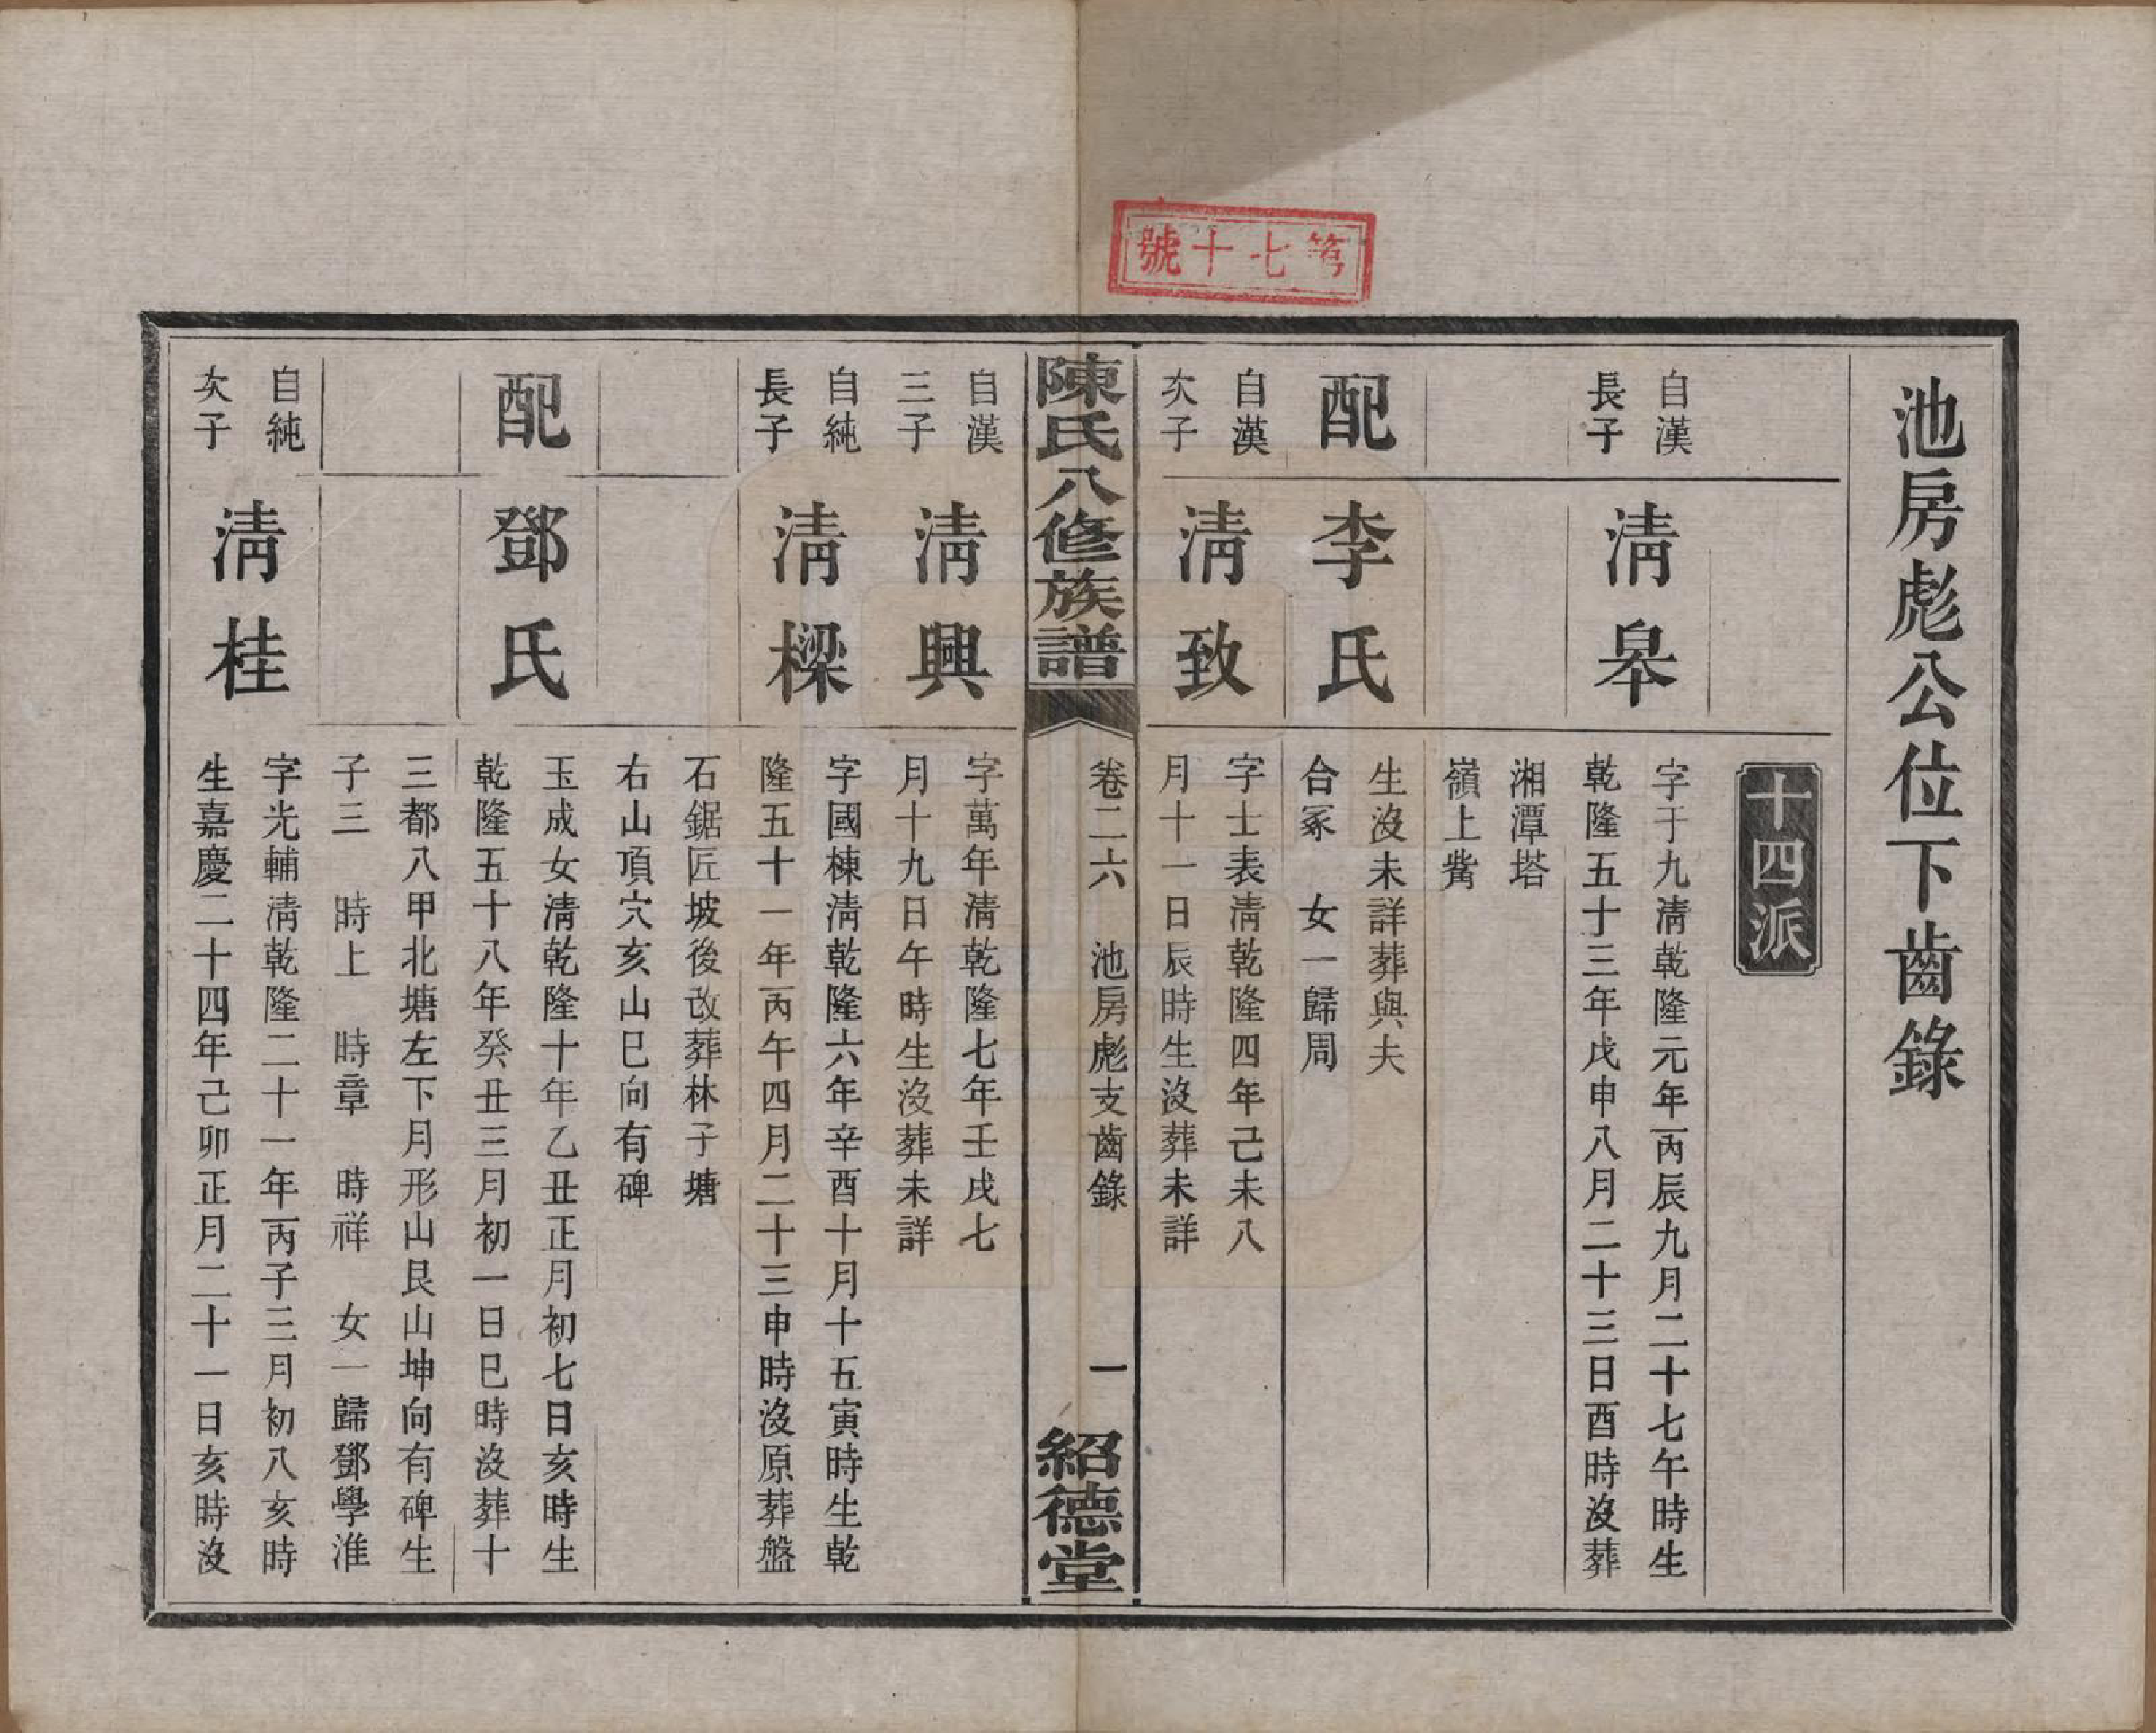 第七十號
池房彪公位下齒錄
十四派
自漢
長子
淸皋
字于九淸乾隆元年丙辰九月二十七午時生
乾隆五十三年戊申八月二十三日酉時沒葬
湘潭塔
嶺上觜
配
李氏
生沒未詳葬與夫
合冢 女一歸周
自漢
次子
淸致
字士表淸乾隆四年己未八
月十一日辰時生沒葬未詳
陳氏八修族譜
卷二六 池房彪支齒錄
一
紹德堂
自漢
三子
淸興
字萬年淸乾隆七年壬戌七
月十九日午時生沒葬未詳
自純
長子
淸樑
字國棟淸乾隆六年辛酉十月十五寅時生乾
隆五十一年丙午四月二十三申時沒原葬盤
石鋸匠坡後改葬林子塘
右山頂穴亥山巳向有碑
配
鄧氏
玉成女淸乾隆十年乙丑正月初七日亥時生
乾隆五十八年癸丑三月初一日巳時沒葬十
三都八甲北塘左下月形山艮山坤向有碑生
子三 時上 時章 時祥 女一歸鄧學淮
自純
次子
淸桂
字光輔淸乾隆二十一年丙子三月初八亥時
生嘉慶二十四年己卯正月二十一日亥時沒